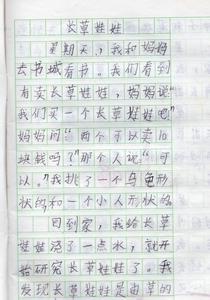 长草娃娃
星期天，我和妈妈
去书城看书。我们看到
有卖长草娃娃，妈妈说“
我们买一个长草娃娃吧”
妈妈问“两个可以卖10
块钱吗？”那个人说“可
以。”我挑了一个乌龟形
状的和一个小人形状的
回到家，我给长草
娃娃浇了一点水，就开
始研究长草娃娃了。我
发现长草娃娃是由草的